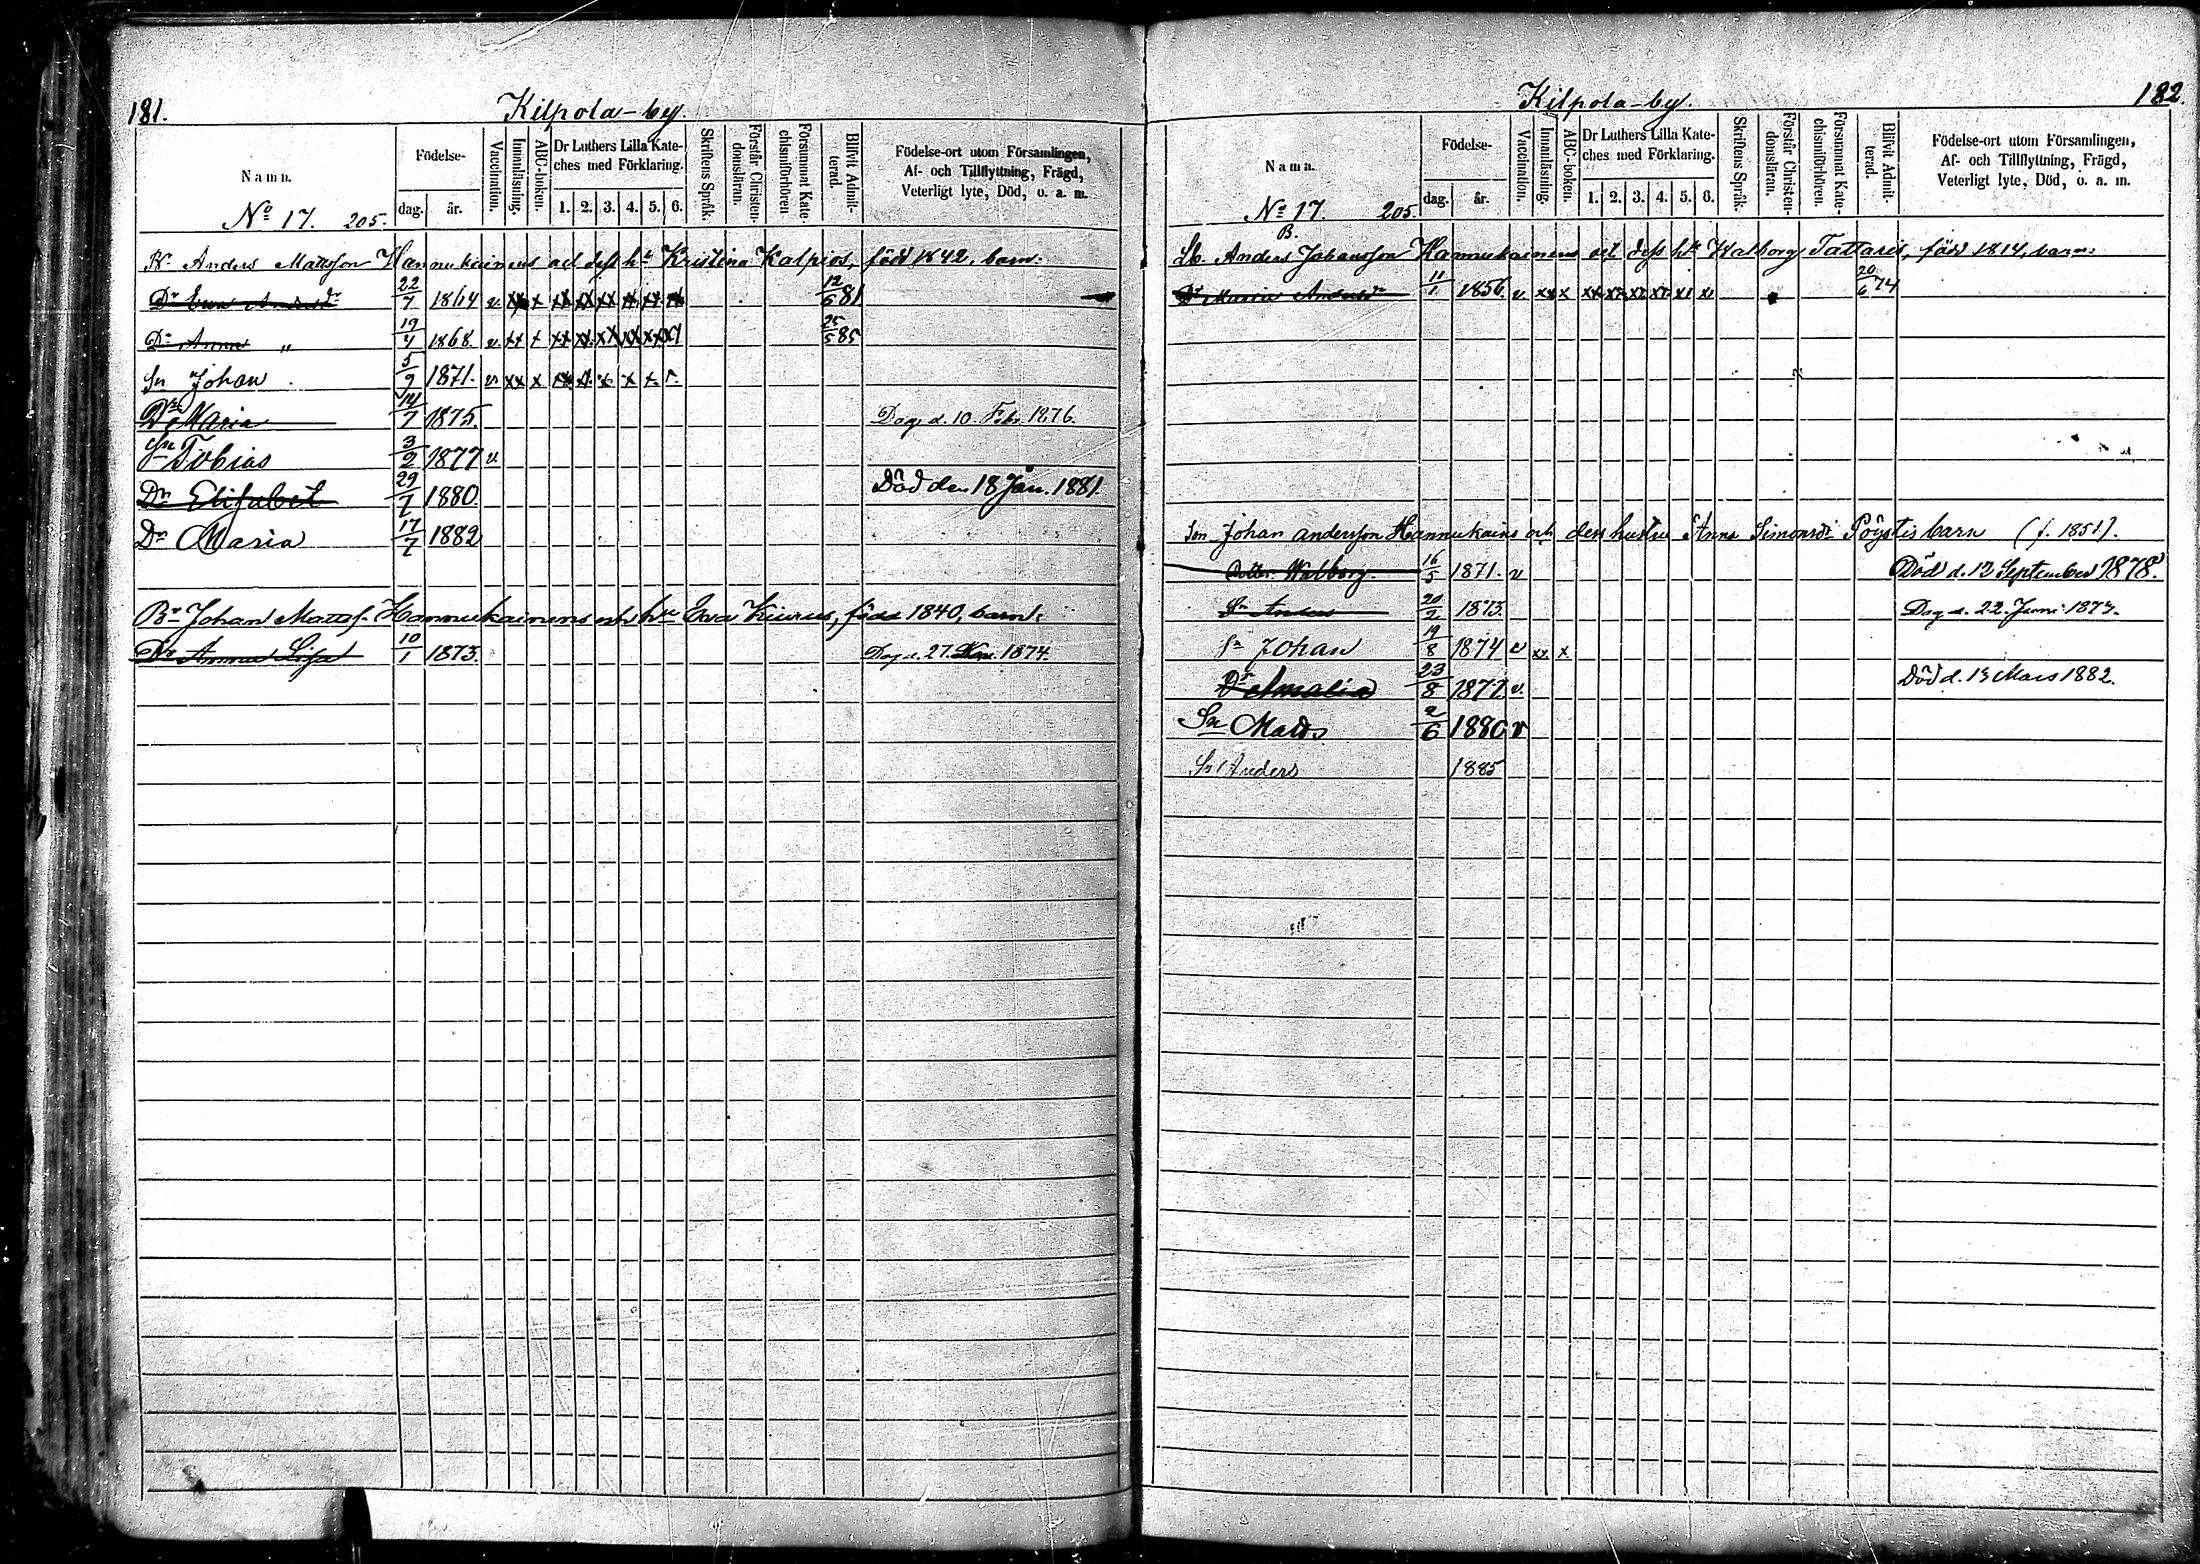 181.
Kilpola-by.
Namn.
Födelse-
dag.
år.
Vaccination.
Innanläsning.
ABC-boken.
Dr Luthers Lilla Kate-
ches med Förklaring.
1. 2. 3. 4. 5. 6.
Skriftens Språk.
Förstår Christen-
domsläran.
Försummat Kate-
chismiförhören
Blifvit Admit-
terad.
Födelse-ort utom Församlingen,
Af- och Tillflyttning, Frägd,
Veterligt lyte, Död, o. a. m.
No 17. 205.
Anders Mattsson Hannukainens och dess hu Kristina Kalpios, född 1842, barn:
Dr Eva Andersdr 22/7 1864 v. xx x xx xx xx xx xx xx 12/6 81
Dr Anna " 19/4 1868 v. xx x xx xx xx xx xx xx 25/5 85
Sn Johan 5/9 1871. v. xx x xx x x x x
Dr Maria 14/7 1875. Dog d. 10 Febr 1876.
Sn Tobias 3/2 1877 v
Dr Elisabet 29/7 1880. Död den 18 Jan. 1881
Dr Maria 17/7 1882
Br Johan Matts. Hannukainens och hu Eva Kiurus, född 1840, barn:
Dr Anna Lisa 10/1 1873. Dog d. 27. 1874.
182.
Kilpola-by.
Namn.
Födelse-
dag.
år.
Vaccination.
Innanläsning.
ABC-boken.
Dr Luthers Lilla Kate-
ches med Förklaring.
1. 2. 3. 4. 5. 6.
Skriftens Språk.
Förstår Christen-
domsläran.
Försummat Kate-
chismiförhören.
Blifvit Admit-
terad.
Födelse-ort utom Församlingen,
Af- och Tillflyttning, Frägd,
Veterligt lyte, Död, o. a. m.
No 17. 205.
B.
Lb. Anders Johansson Hannukainens och dess hu Walborg Tattaris, född 1814, barn:
Dr Maria Andersdr 11/1 1856. v. xx x xx xx xx xx xx xx 20/6 74
Son Johan andersson Hannukains och dess hustru Anna Simonsdr Pöystis barn (f. 1851).
Dotter Walborg. 16/5 1871. v Död d. 12 September 1878.
Sn Anders 20/2 1873. Dog d. 22. Juni 1873.
Sn Johan 19/8 1874 v xx. x
Dr Amalia 23/8 1877. v. Död d. 13 Mars 1882.
Sn Mats 2/6 1880 v
Sn Anders 1885